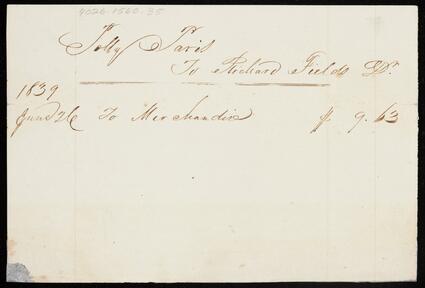 4026.1560-35
Polly Paris
To Richard Fields Dr.
1839
June 26 To Merchandise $ 9.63